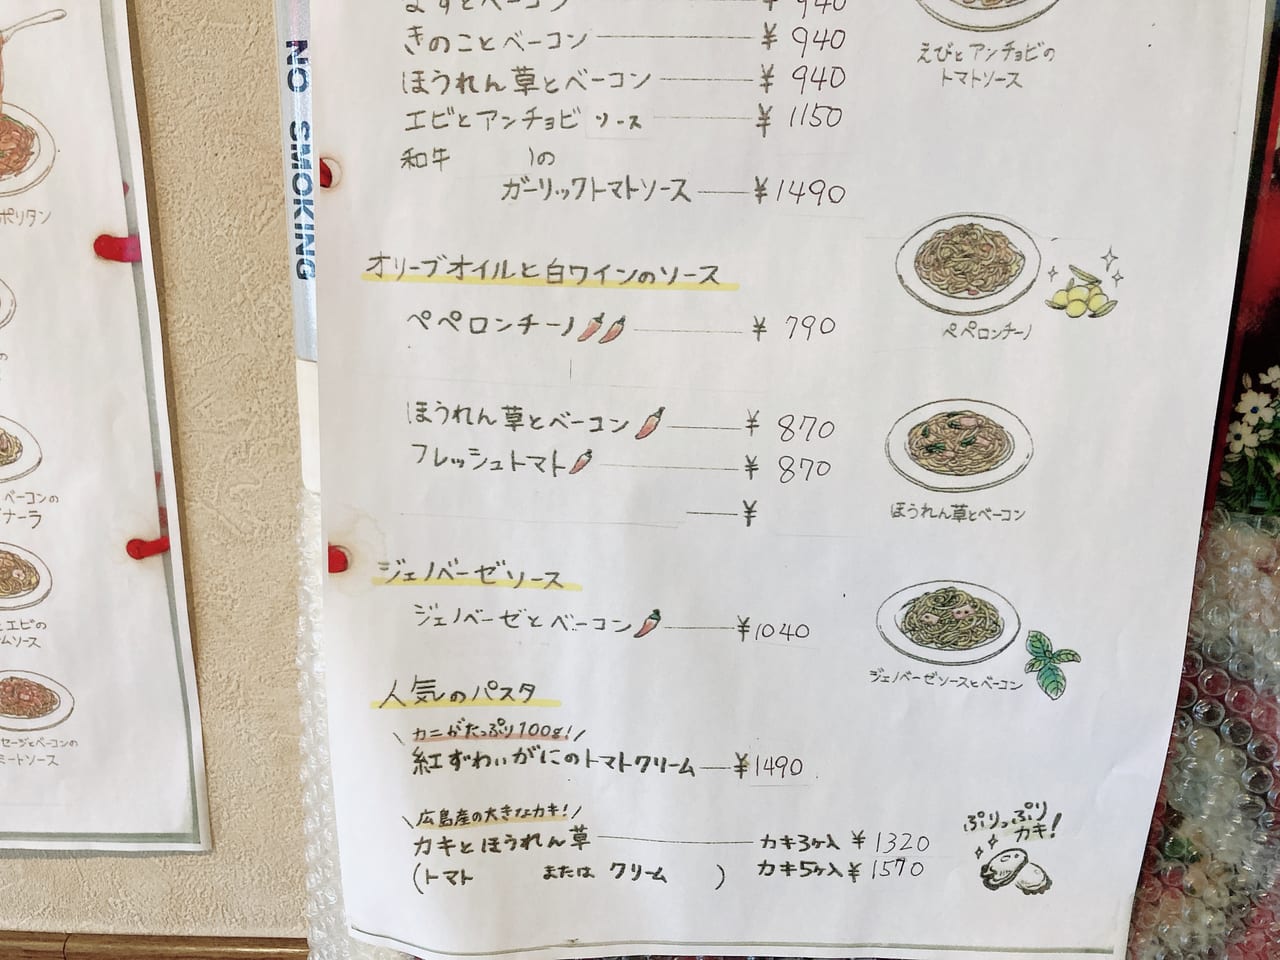 ポリタン
ベーコンの
ナーラ
エビの
ムソース
セージとベーコンの
ミートソース
NO SMOKING
¥ 940
きのことベーコン ¥ 940
ほうれん草とベーコン ¥ 940
エビとアンチョビ ソース ¥ 1150
和牛 )の
ガーリックトマトソース ¥1490
えびとアンチョビの
トマトソース
オリーブオイルと白ワインのソース
ペペロンチーノ ¥ 790
ペペロンチーノ
ほうれん草とベーコン ¥ 870
フレッシュトマト ¥ 870
¥
ほうれん草とベーコン
ジェノベーゼソース
ジェノベーゼとベーコン ¥1040
ジェノベーゼソースとベーコン
人気のパスタ
\カニがたっぷり100g!/
紅ずわいがにのトマトクリーム ¥1490
\広島産の大きなカキ!/
カキとほうれん草 カキ3ヶ入 ¥ 1320
(トマト または クリーム ) カキ5ヶ入 ¥ 1570
ぷりっぷり
カキ!